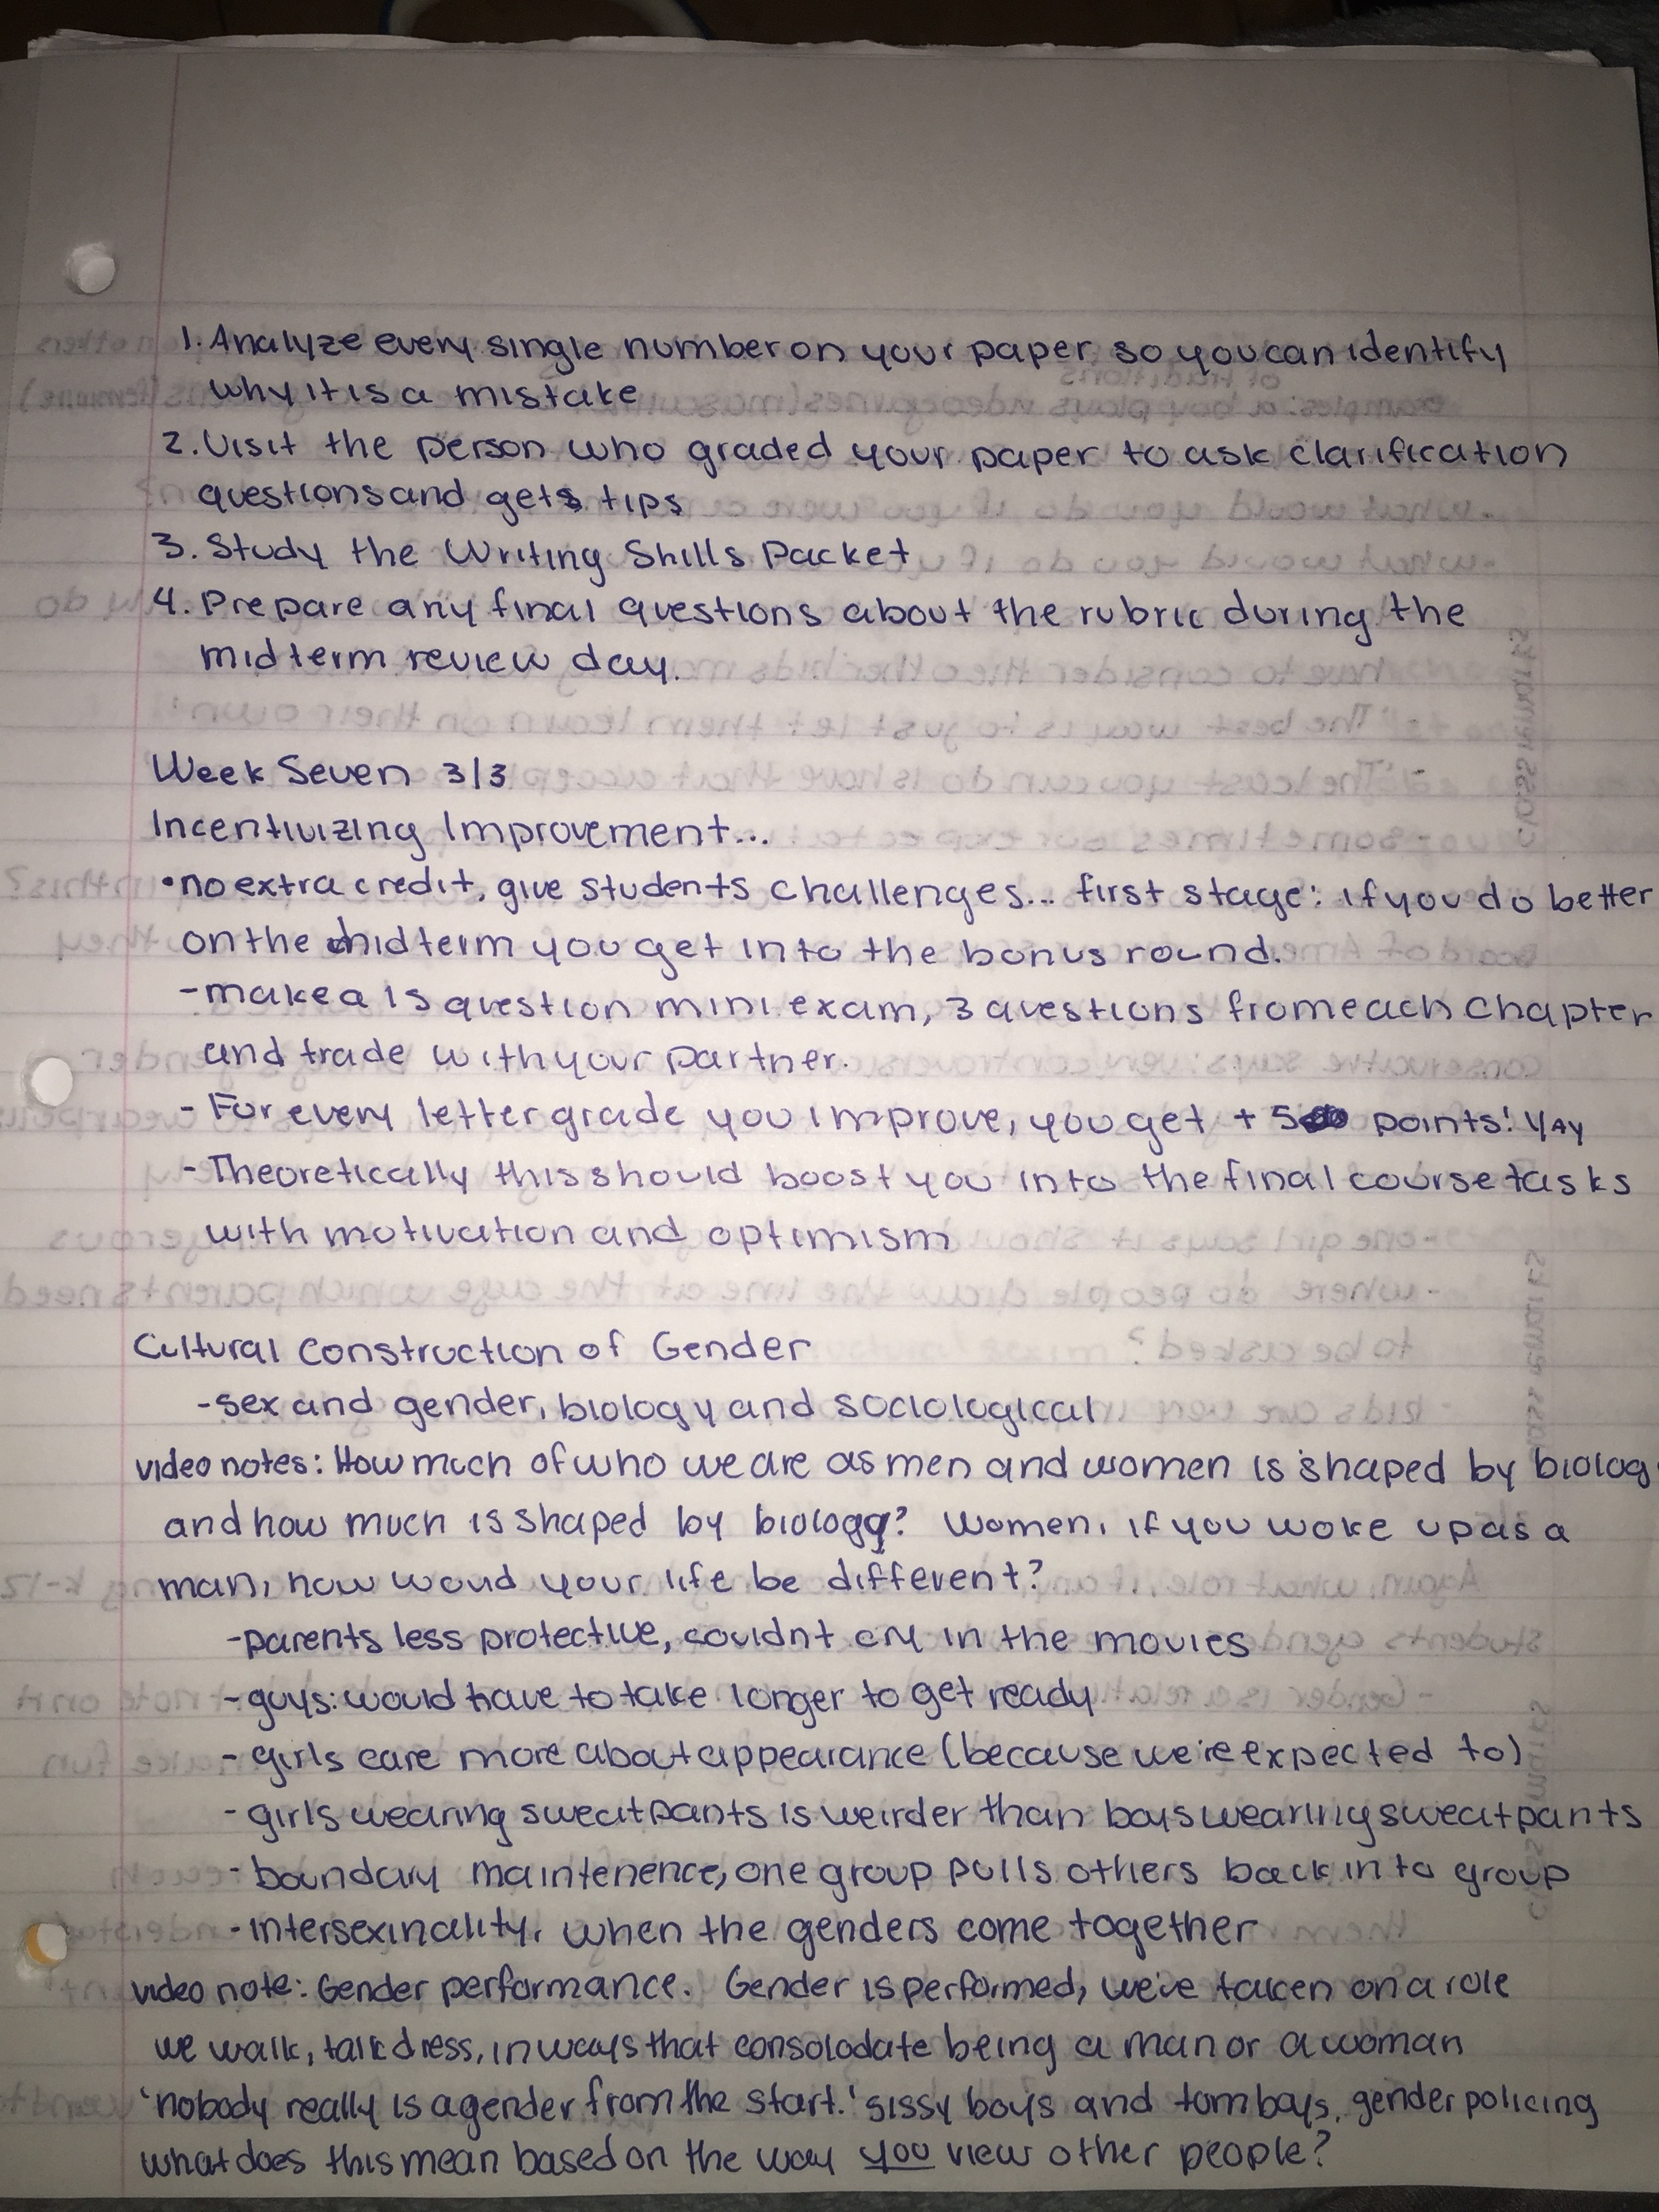 1. Analyze every single number on your paper so you can identify
why it is a mistake
2. Visit the person who graded your paper to ask clarification
questions and gets tips
3. Study the Writing Skills Packet
4. Prepare any final questions about the rubric during the
midterm review day.
Week Seven 3/3
Incentivizing Improvement...
• no extra credit, give students challenges... first stage: if you do better
on the midterm you get into the bonus round.
- make a 15 question mini exam, 3 questions from each chapter
and trade with your partner.
- For every letter grade you improve, you get + 5 points! YAY
- Theoretically this should boost you into the final course tasks
with motivation and optimism
Cultural Construction of Gender
- sex and gender, biology and sociological
video notes: How much of who we are as men and women is shaped by biolog
and how much is shaped by biology? Women, if you woke up as a
man, how woud your life be different?
- parents less protective, couldnt cry in the movies
- guys: would have to take longer to get ready
- girls care more about appearance (because we're expected to)
- girls wearing sweatpants is weirder than boys wearing sweatpants
- boundary maintenence, one group pulls others back into group
- intersexinality, when the genders come together
video note: Gender performance. Gender is performed, we've taken on a role
we walk, talk dress, in ways that consolodate being a man or a woman
'nobody really is a gender from the start.' sissy boys and tomboys, gender policing
what does this mean based on the way you view other people?